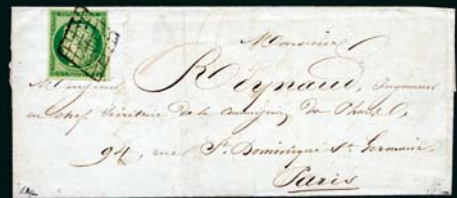 Monsieur
Monsieur Reynaud, Ingénieur
en chef Secrétaire de la commission des Phares,
94, rue St. Dominique St. Germain,
Paris